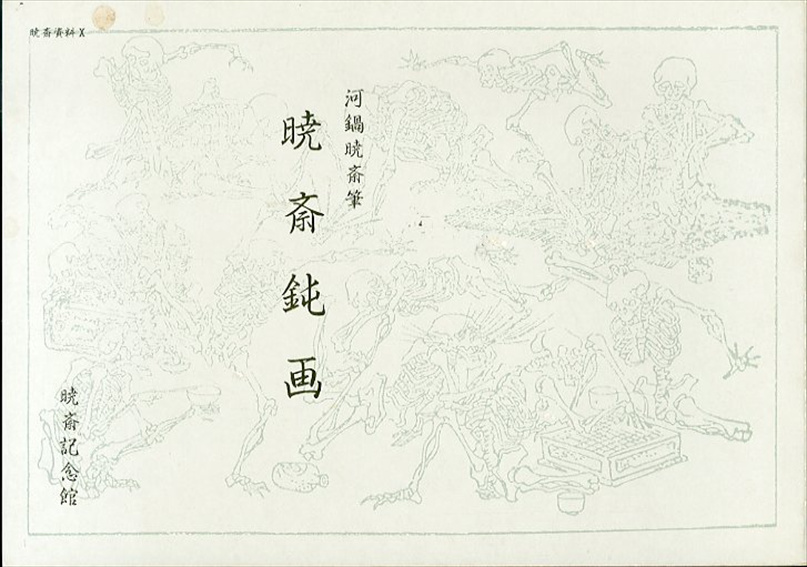 暁斎資料X
河鍋暁斎筆
暁斎鈍画
暁斎記念館